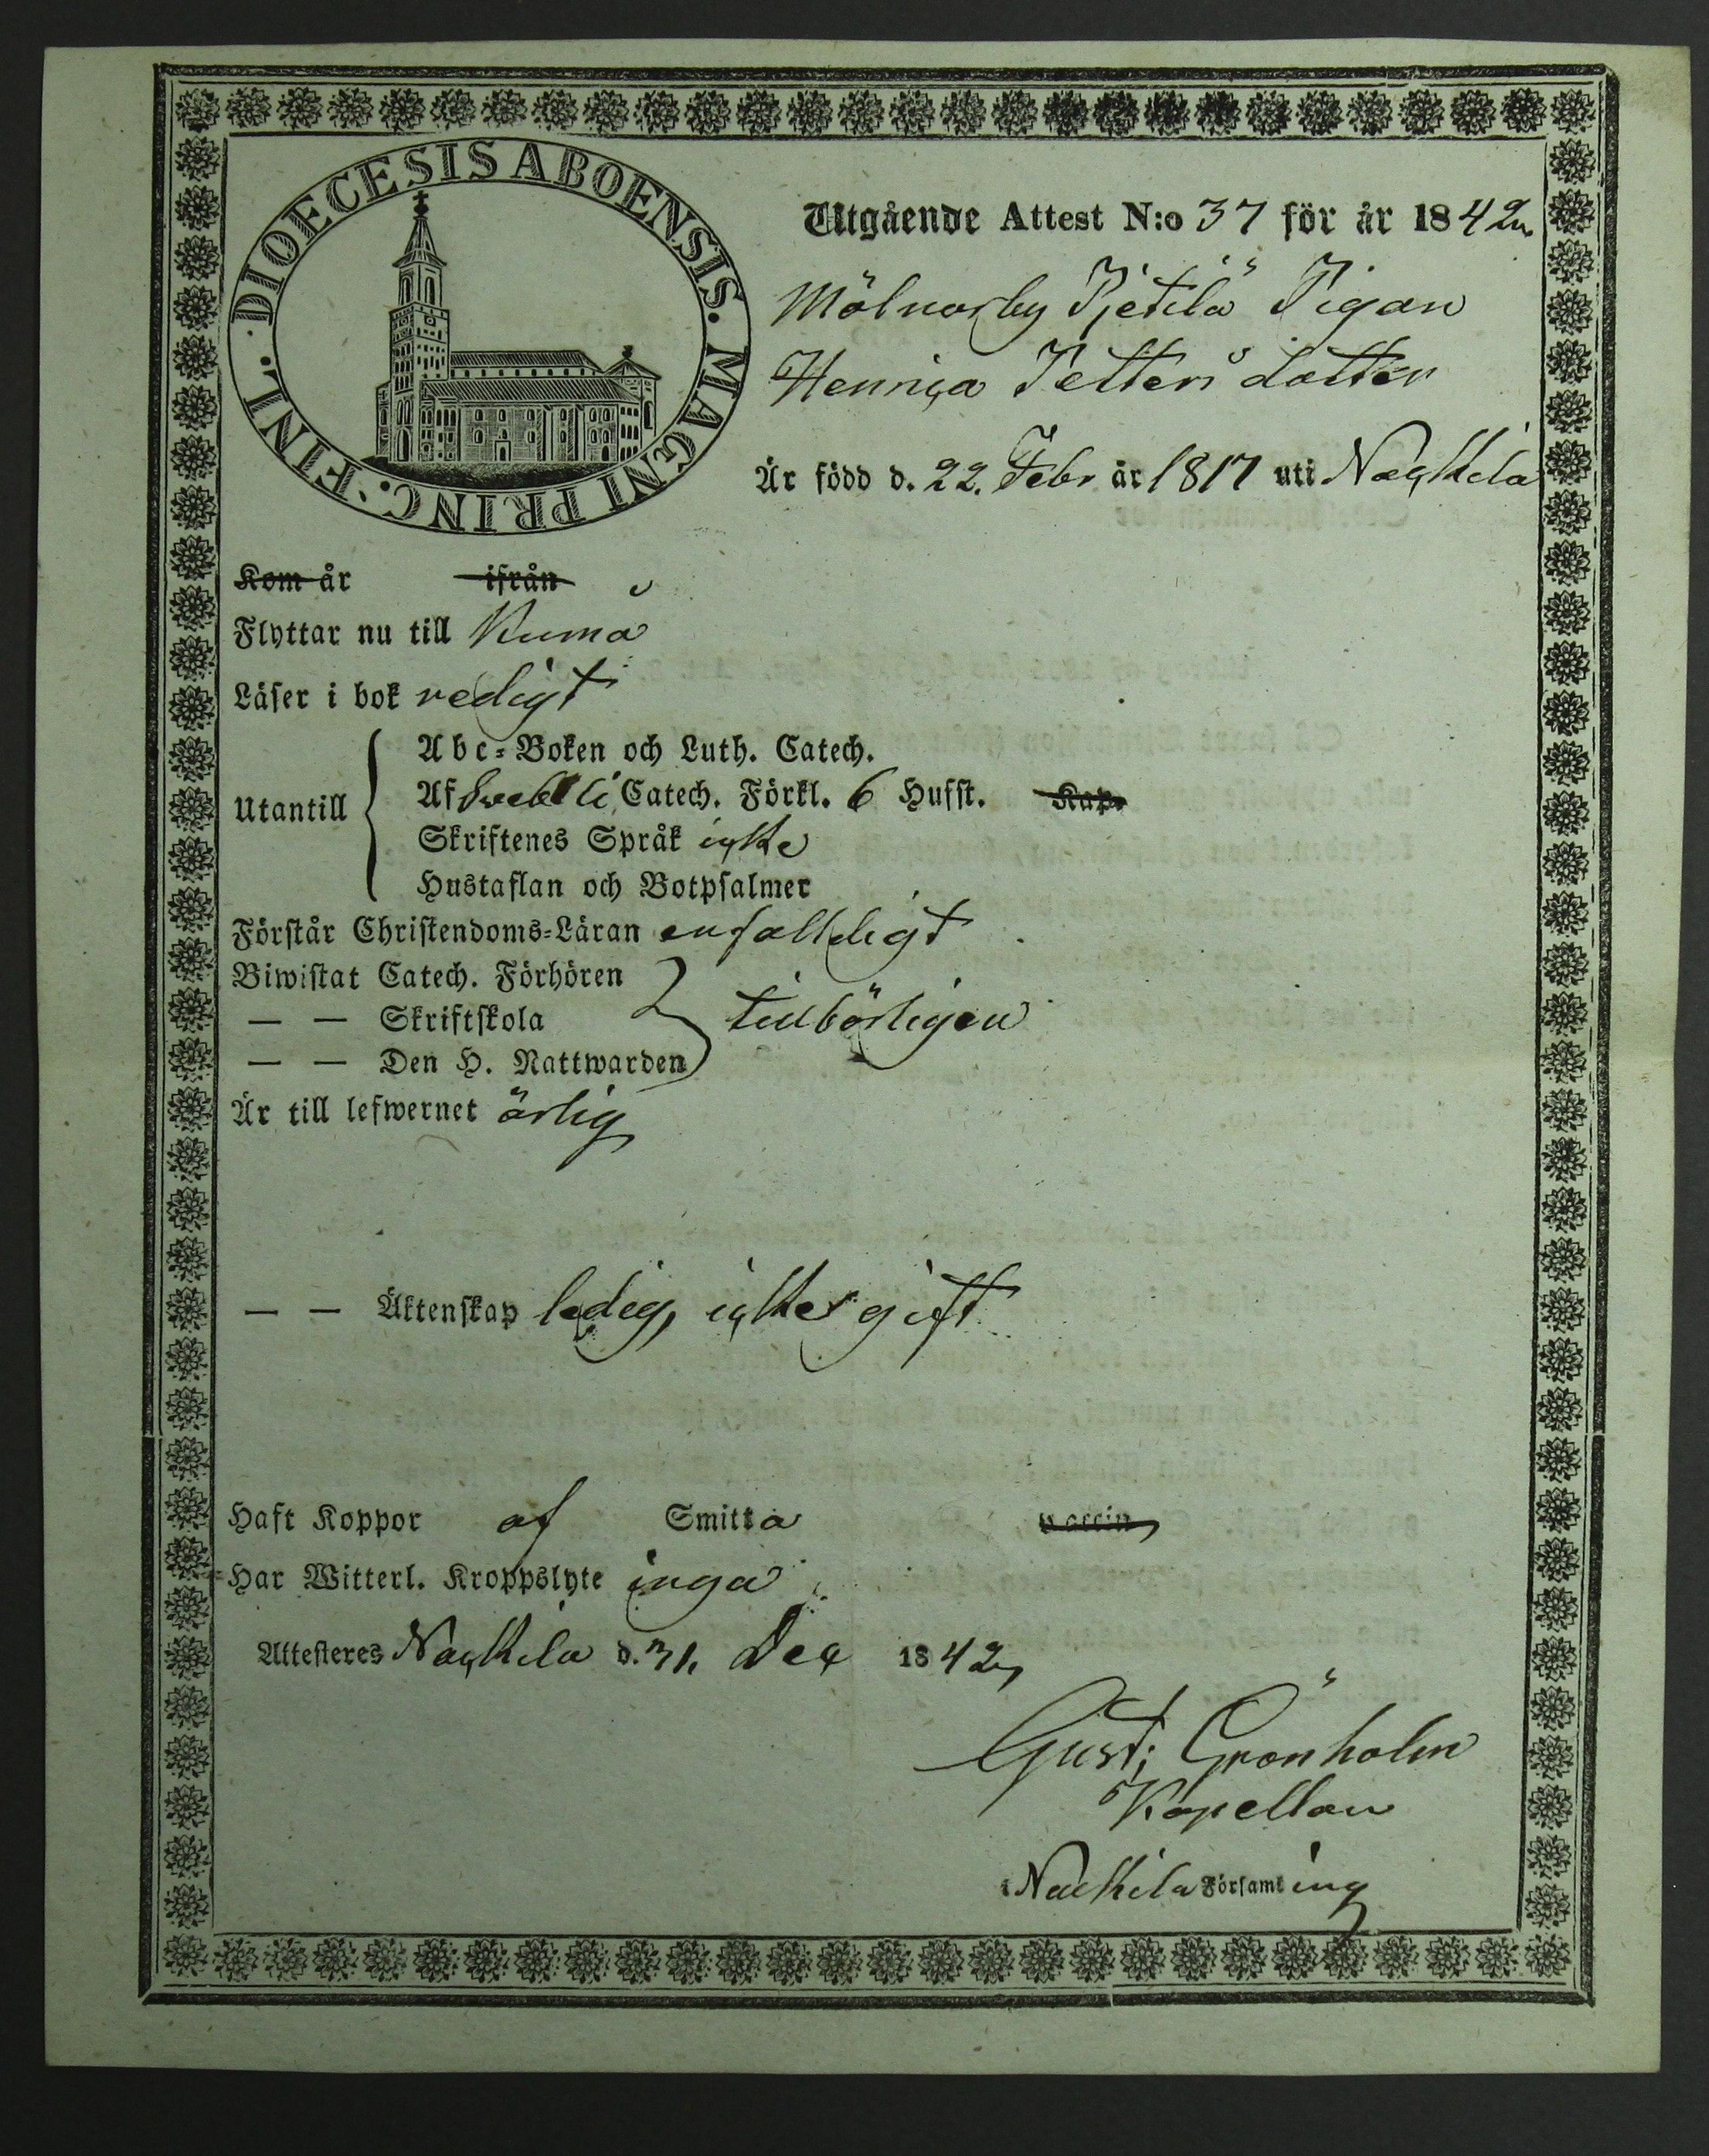 DIOECESIS ABOENSIS. MAGNI PRINC. FINL.
Utgående Attest N:o 37 för år 1842
Mölnorby Pjetilä Pigan
Henrica Petters dotter
Är född d. 22. Febr år 1817 uti Nackila
Kom år ifrån
Flyttar nu till Kumå
Läser i bok redigt
Utantill
Abc-Boken och Luth. Catech.
Af Swebelii Catech. Förkl. 6 Hufst. Kap.
Skriftenes Språk icke
Hustaflan och Botpsalmer
Förstår Christendoms-Läran enfalldigt
Biwistat Catech. Förhören
— — Skriftskola tillbörligen
— — Den H. Nattwarden
Är till lefwernet ärlig
— — Äktenskap ledig, icke gift
Haft Koppor af Smitta vaccin
Har Witterl. Kroppslyte inga
Attesteres Nackila d. 31. Dec 1842
Gust: Grönholm
Kapellan
i Nackila Församling